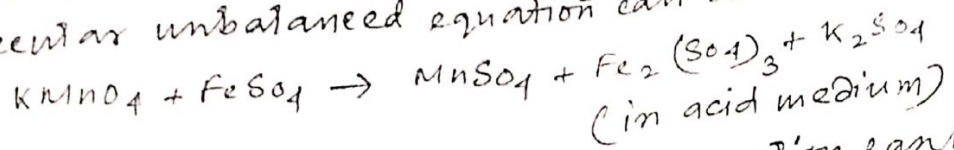 unbalanced equation
KMnO4 + FeSO4 → MnSO4 + Fe2(SO4)3 + K2SO4
(in acid medium)